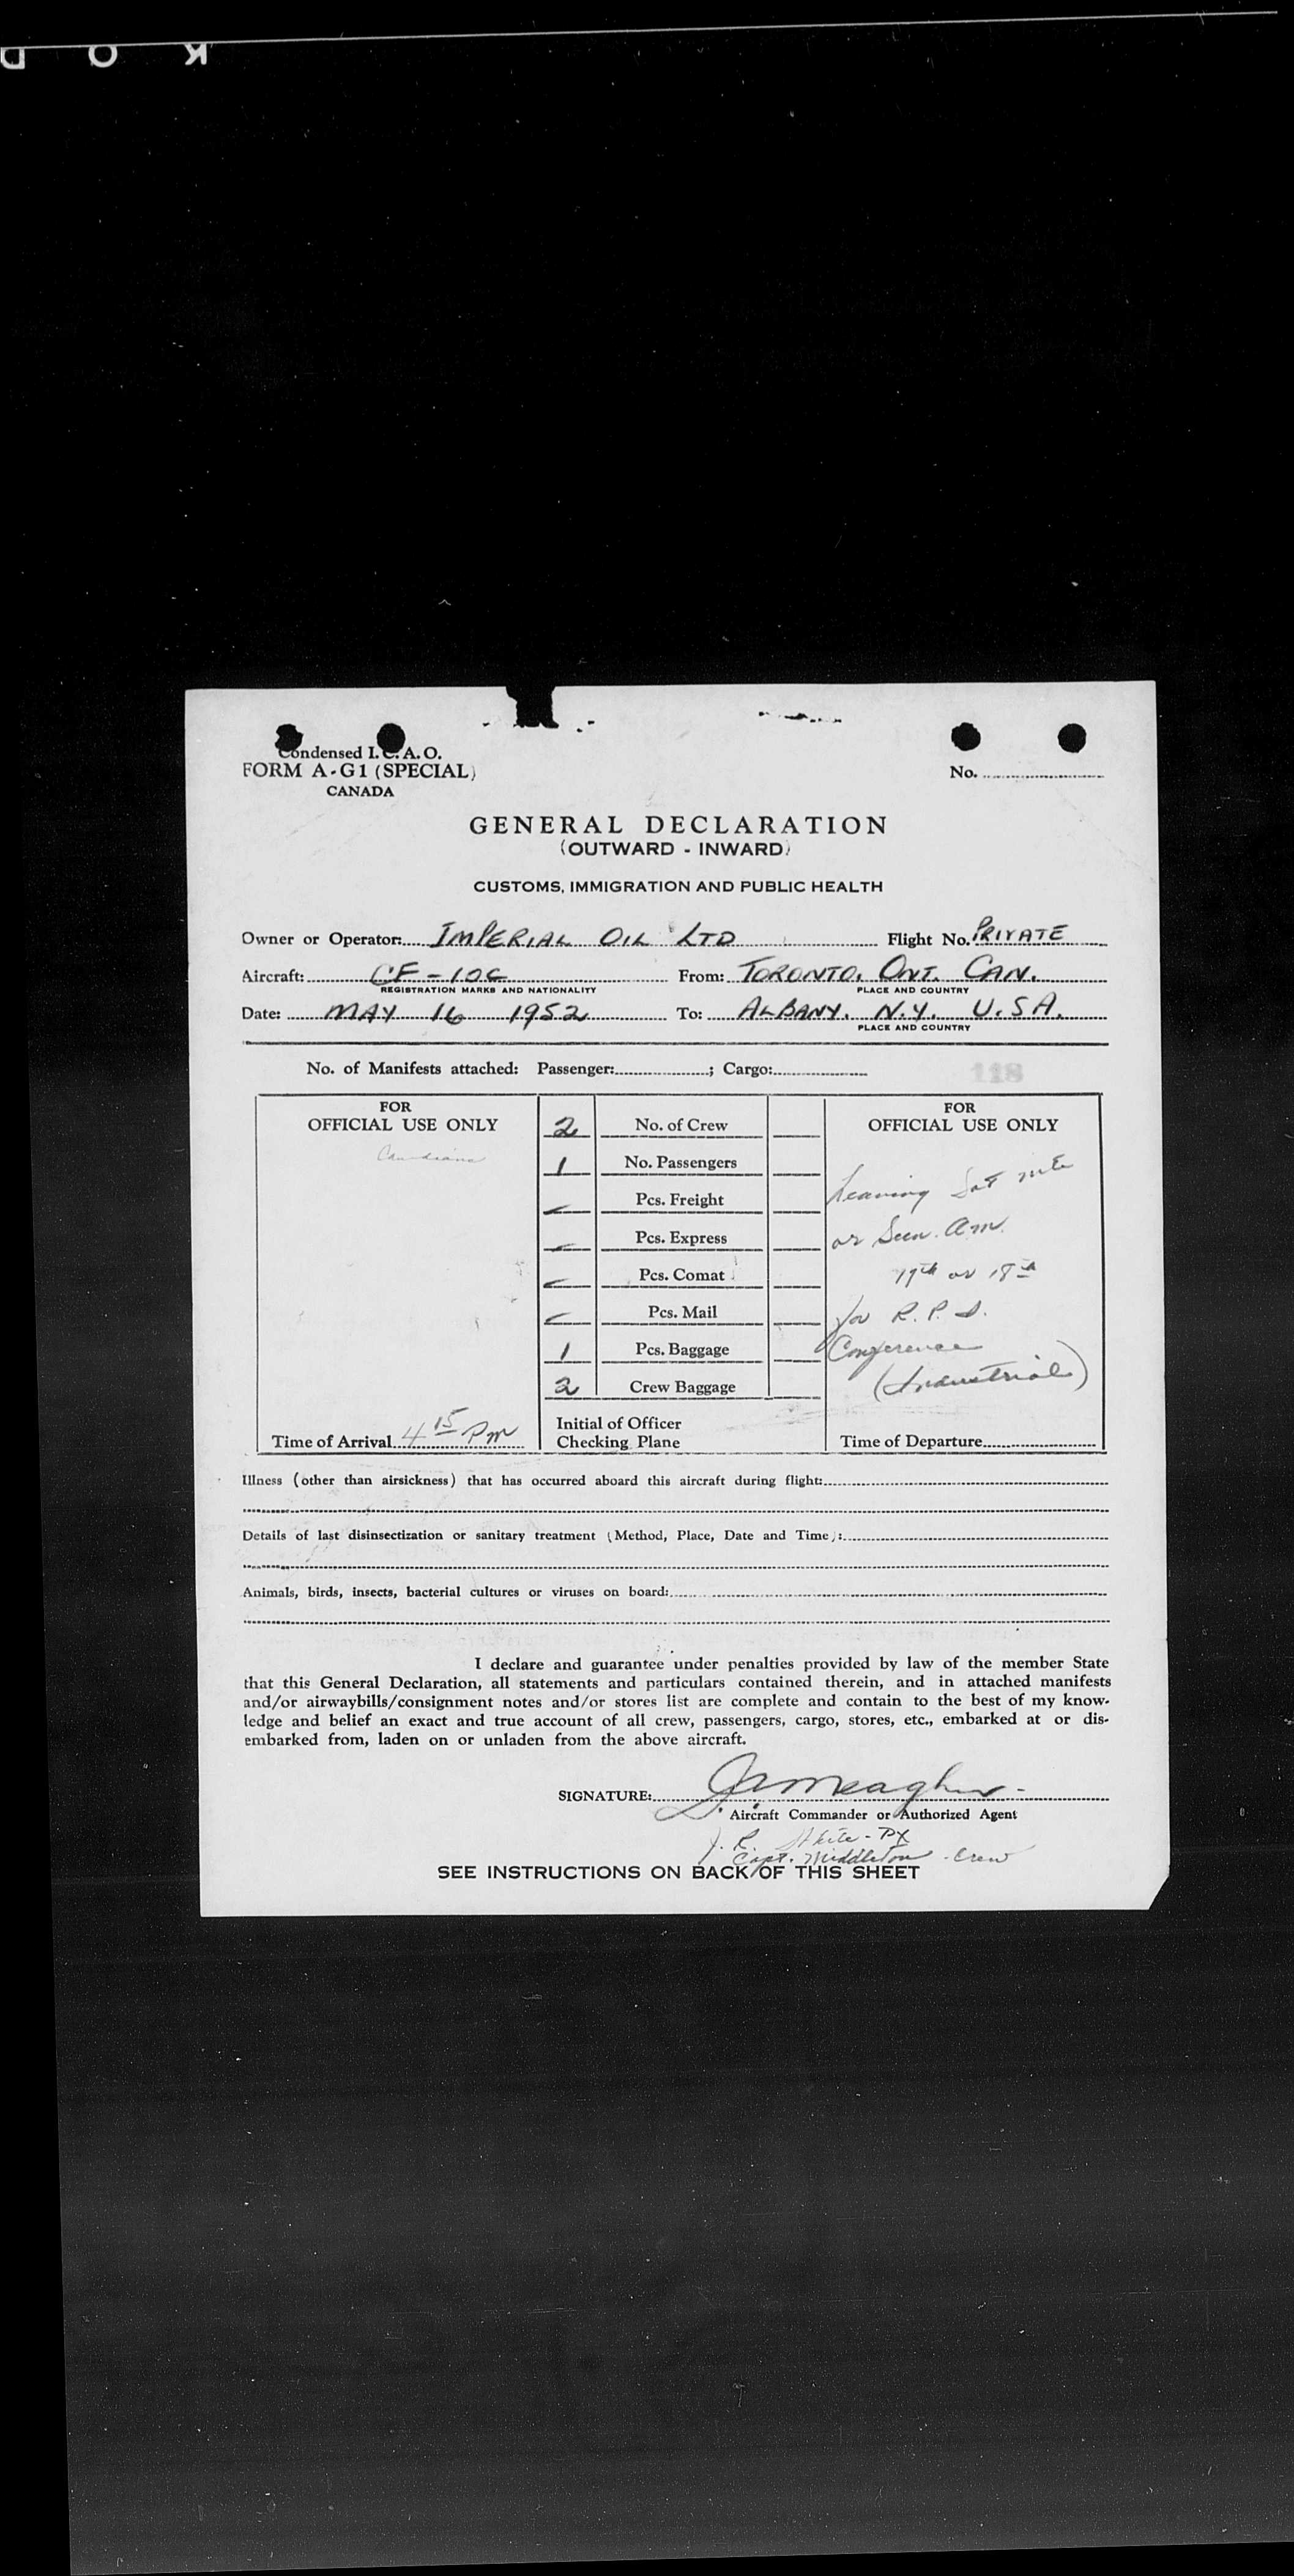 KOD
Condensed I.C.A.O.
FORM A-G1 (SPECIAL)
CANADA
No.
GENERAL DECLARATION
(OUTWARD - INWARD)
CUSTOMS, IMMIGRATION AND PUBLIC HEALTH
Owner or Operator: IMPERIAL OIL LTD Flight No. PRIVATE
Aircraft: CF-IOC From: TORONTO, ONT. CAN.
REGISTRATION MARKS AND NATIONALITY PLACE AND COUNTRY
Date: MAY 16 1952 To: ALBANY. N.Y. U.S.A.
PLACE AND COUNTRY
No. of Manifests attached: Passenger: ; Cargo:
118
FOR
OFFICIAL USE ONLY
Canadians
2 No. of Crew
1 No. Passengers
Pcs. Freight
Pcs. Express
Pcs. Comat
Pcs. Mail
1 Pcs. Baggage
2 Crew Baggage
Time of Arrival 4 15 Pm
Initial of Officer
Checking Plane
FOR
OFFICIAL USE ONLY
Leaving Sat nite
or Sun. Am.
17th or 18th
for R. P. I.
Conference
(Industrial)
Time of Departure
Illness (other than airsickness) that has occurred aboard this aircraft during flight:
Details of last disinsectization or sanitary treatment (Method, Place, Date and Time):
Animals, birds, insects, bacterial cultures or viruses on board:
I declare and guarantee under penalties provided by law of the member State
that this General Declaration, all statements and particulars contained therein, and in attached manifests
and/or airwaybills/consignment notes and/or stores list are complete and contain to the best of my know-
ledge and belief an exact and true account of all crew, passengers, cargo, stores, etc., embarked at or dis-
embarked from, laden on or unladen from the above aircraft.
SIGNATURE: Meagher
Aircraft Commander or Authorized Agent
J. R. White - PX
Capt. Middleton - Crew
SEE INSTRUCTIONS ON BACK OF THIS SHEET